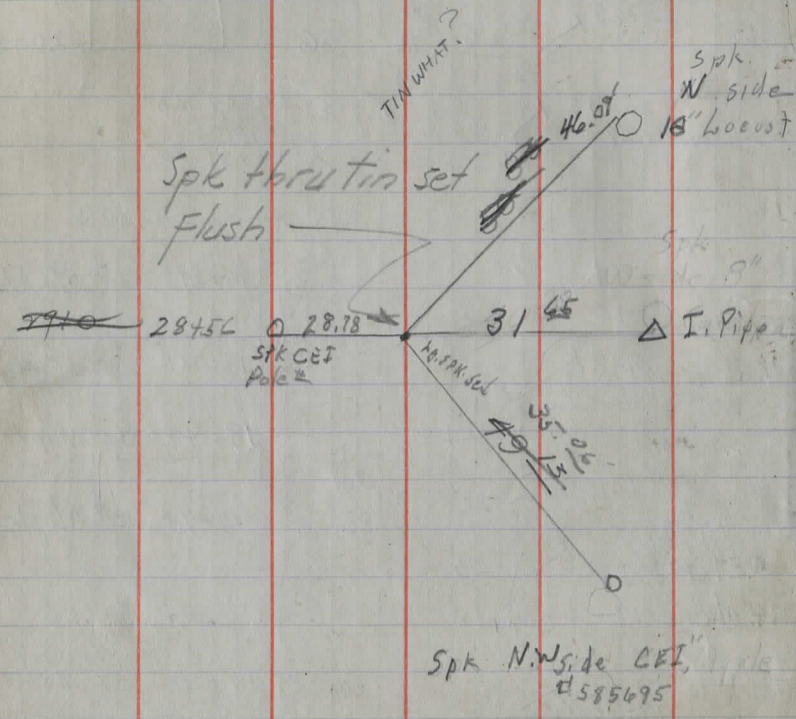 TIN WHAT?
Spk.
N side
18" Locust
46.09
Spk thru tin set
Flush
Spk
W side 8"
28+56
28.78
31 65
I. Pipe
Spk CEI
Pole
Lg. spk. set
35.06
49 13
Spk N.W side CEI,
# 585695